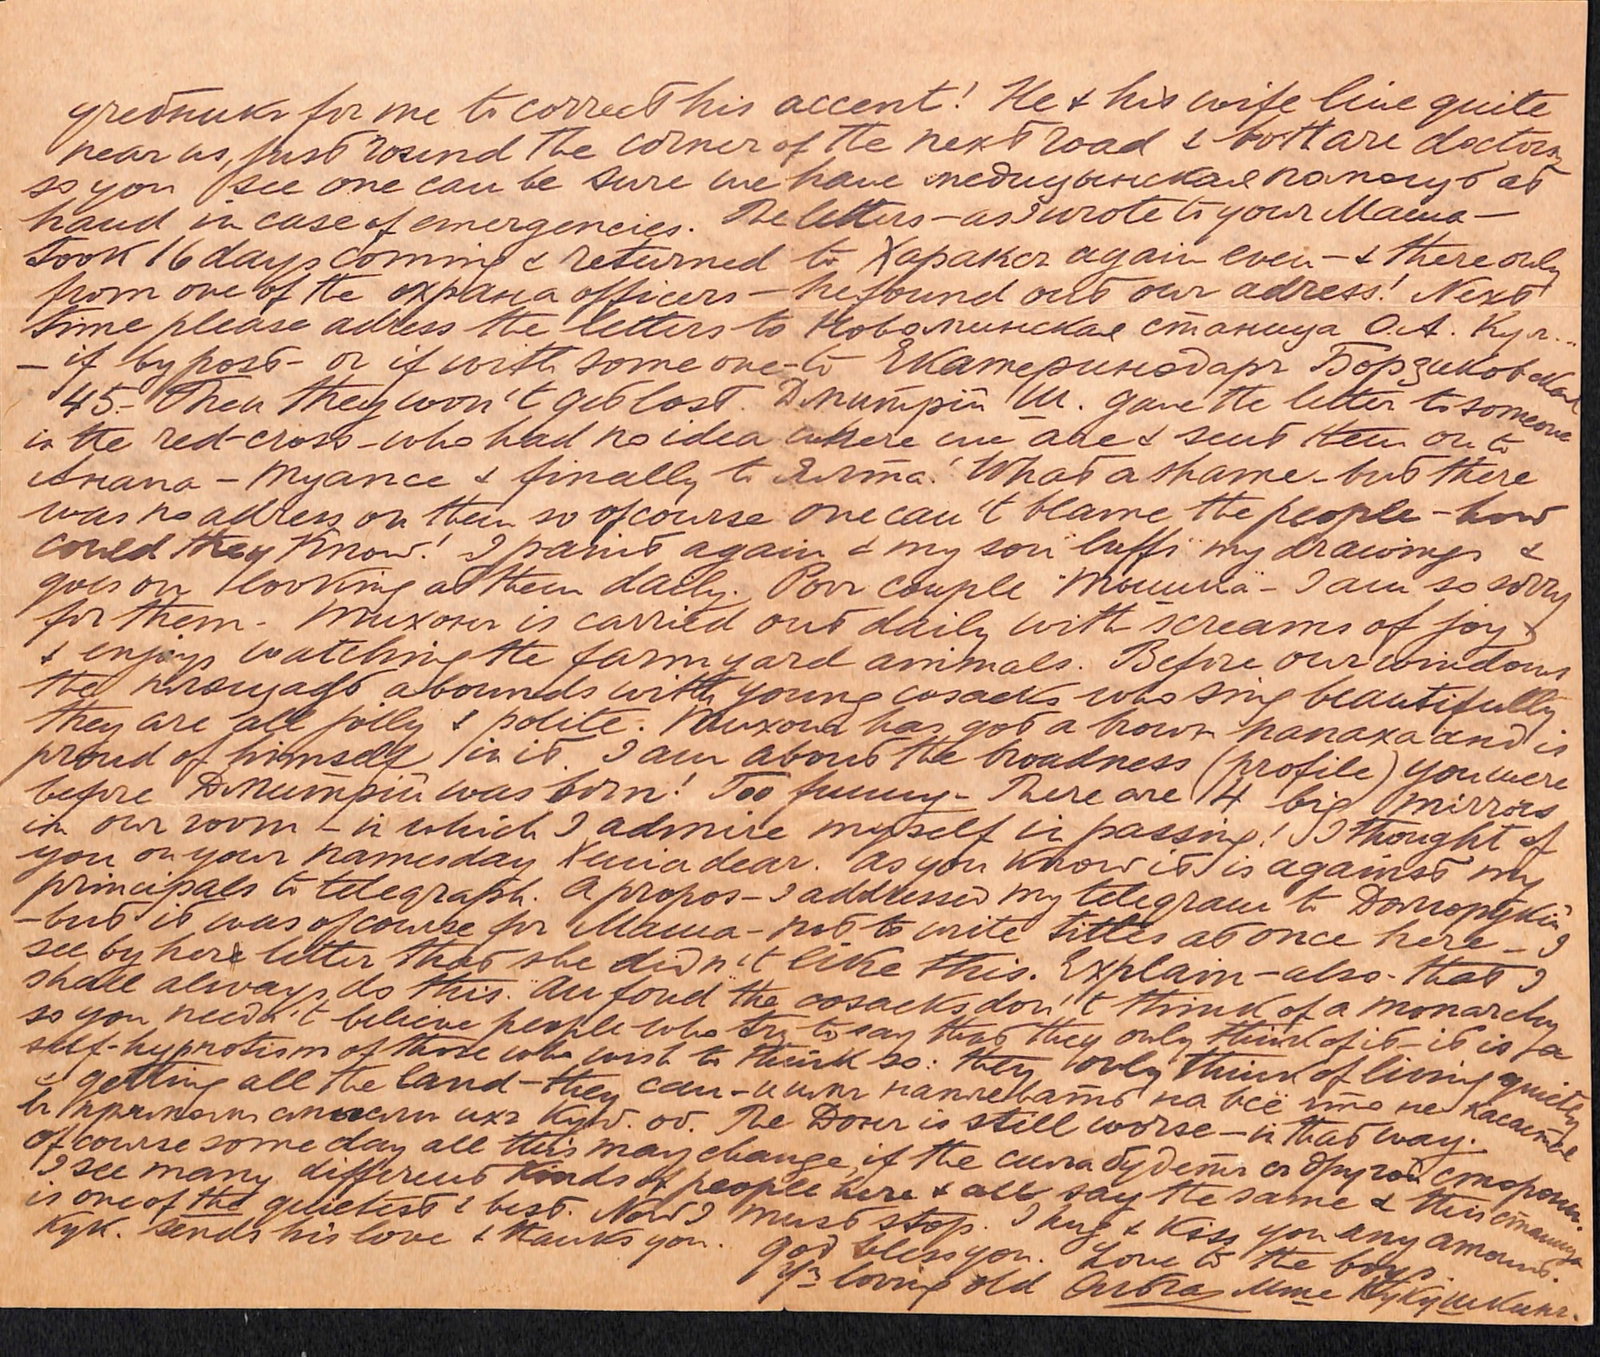 урядника for me to correct his accent! He & his wife live quite
near us, just round the corner of the next road & both are doctors
so you see one can be sure we have медицынская помощь at
hand in case of emergencies. The letters – as I wrote to your Мама –
took 16 days coming & returned to Харакс again even – & there only
from one of the охрана officers – he found out our adress! Next
time please adress the letters to Новоминская станица О.А. Кул...
– if by post – or if with some one – to Екатеринодаръ Борзиковская
45. – Then they won't get lost. Дмитрій Ш. gave the letter to someone
in the red-cross – who had no idea where we are & sent them on to
Анапа – Туапсе & finally to Ялта! What a shame – but there
was no adress on them so of course one can't blame the people – how
could they know! I paint again & my son "luffs" my drawings &
goes on looking at them daily. Poor couple "Тюша" – I am so sorry
for them – Тихон is carried out daily with screams of joy &
& enjoys watching the farmyard animals. Before our windows
the площадь abounds with young cosacks who sing beautifully
they are all jolly & polite. Тихон has got a brown папаха and is
proud of himself in it. I am about the broadness (profile) you were
before Дмитрій was born! Too funny – There are 4 big mirrors
in our room – in which I admire myself in passing! I thought of
you on your namesday Xenia dear. as you know it is against my
principals to telegraph. A propos – I addressed my telegram to Долгорукій
– but it was of course for Мама – not to write titles at once here – I
see by her letter that she didn't like this. Explain – also – that I
shall always do this. Au fond the cosacks don't think of a monarchy
so you needn't believe people who try to say that they only think of it – it is a
self-hypnotism of those who wish to think so: they only think of living quietly
& getting all the land – they can – и имъ наплевать на всё что не касается
их Куб. об. The Донъ is still worse – in that way.
Of course some day all this may change, if the сила будетъ съ другой стороны.
I see many different kinds of people here & all say the same & this станица
is one of the quietest & best. Now I must stop. I hug & kiss you any amount.
Кук. sends his love & thanks you. God bless you. Love to the boys.
Yr loving old Ольга Mme Кукушкинъ.